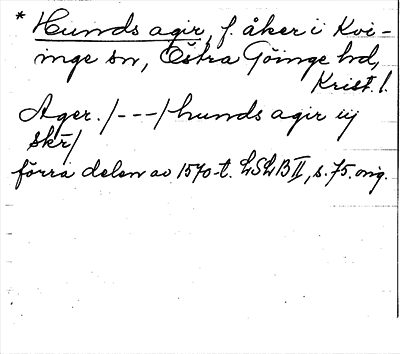 * Hunds agir, f. åker i Kvi-
inge sn, Östra Göinge hd,
Krist. l.
Ager. /---/ hunds agir ij
skr/
förra delen av 1570-t. LSLB II, s. 75. orig.